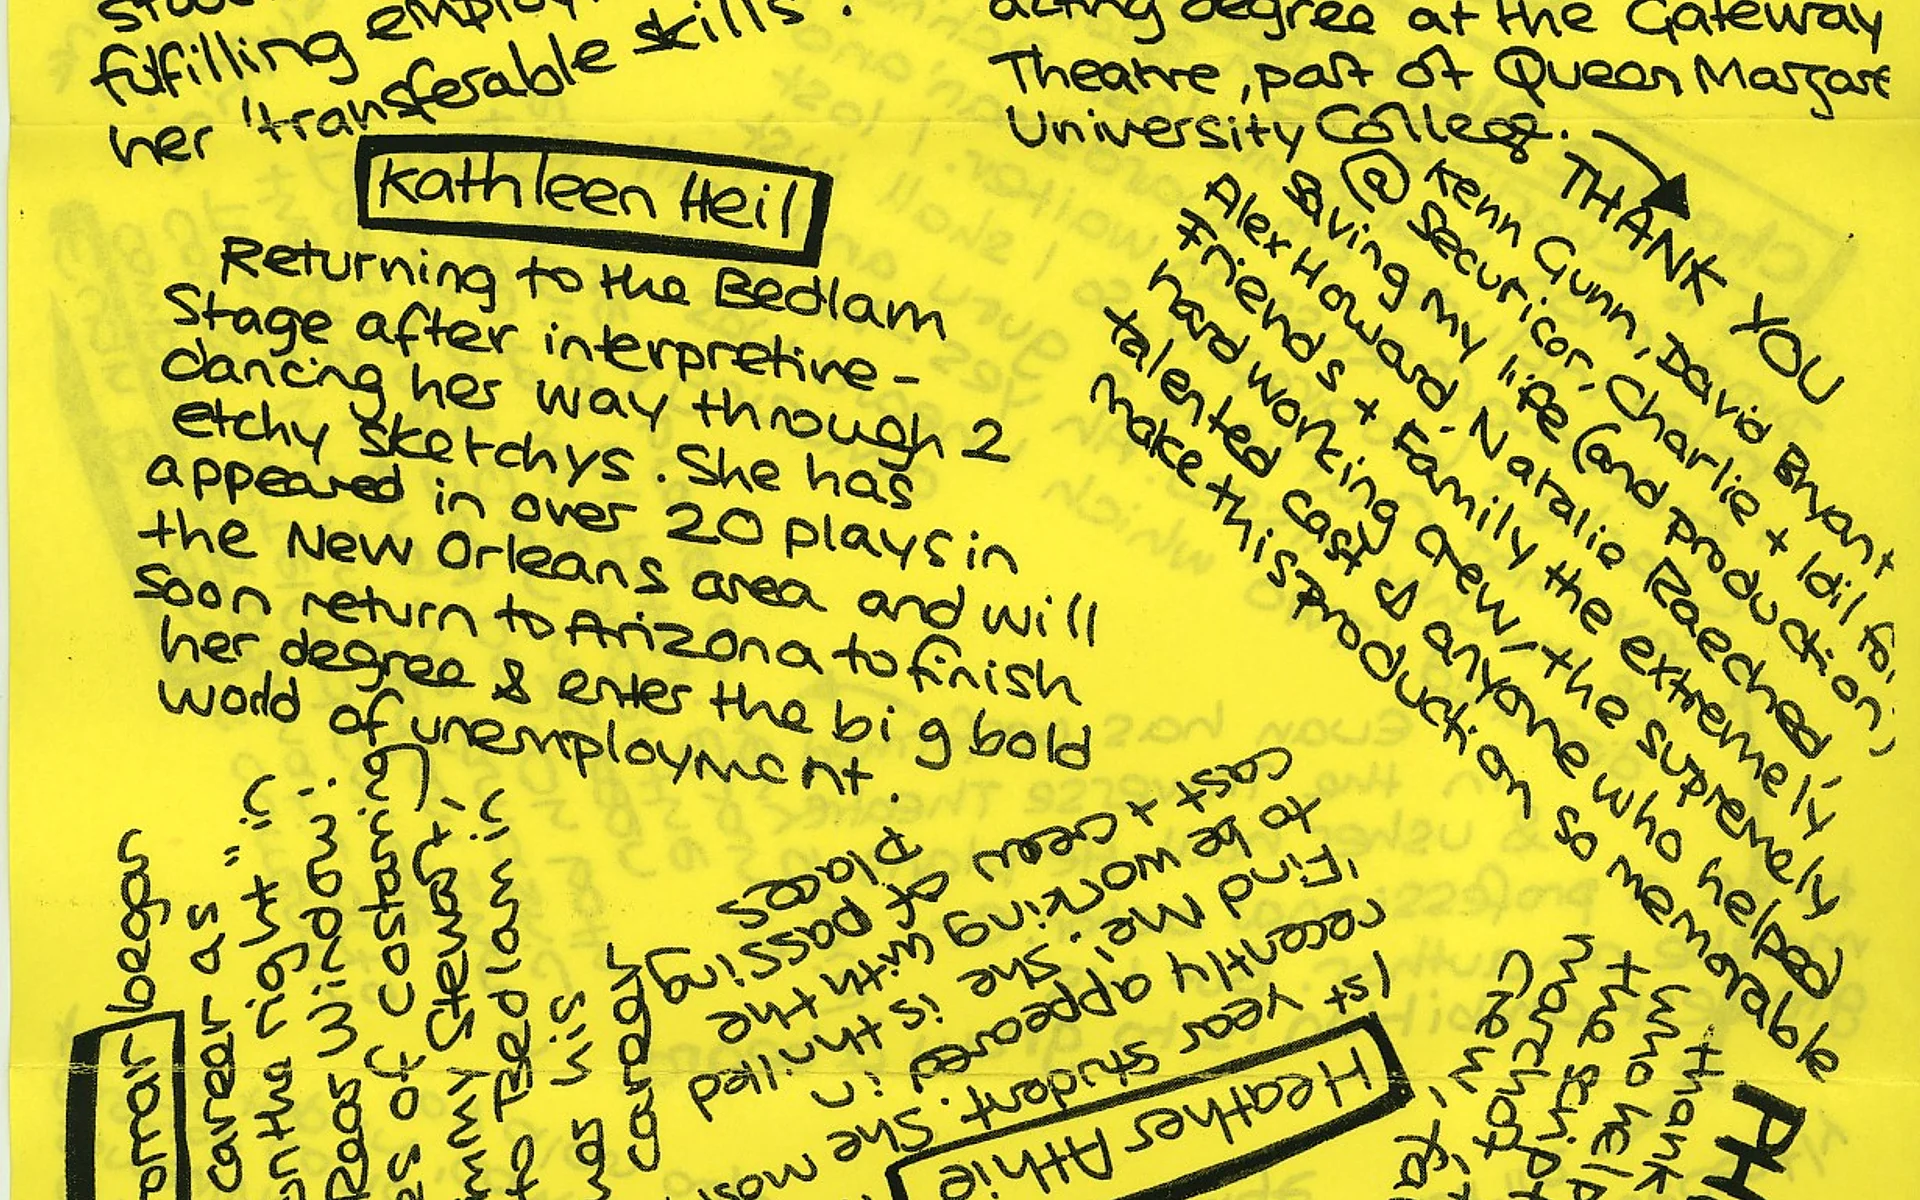 fulfilling
her 'transferable skills'.
Kathleen Heil
Returning to the Bedlam
Stage after interpretive-
dancing her way through 2
etchy sketchys. She has
appeared in over 20 plays in
the New Orleans area and will
soon return to Arizona to finish
her degree & enter the big bold
world of unemployment.
acting degree at the Gateway
Theatre, part of Queen Margare
University College.
THANK YOU
Kenn Gunn, David Bryant
@ Securicor, Charlie + Idil for
saving my life (and production)
Alex Howard, Natalie Raeched,
Friends + Family the extremely
hard working crew, the supremely
talented cast & anyone who helped
make this production so memorable
Heather Athie
1st year student. She most
recently appeared in
'Find Me'. She is thrilled
to be working with the
cast + crew of passing
places
began
career as
the right"
Rear Window'.
of costaring
Stewart
Bedlam
his
thank
who
the script